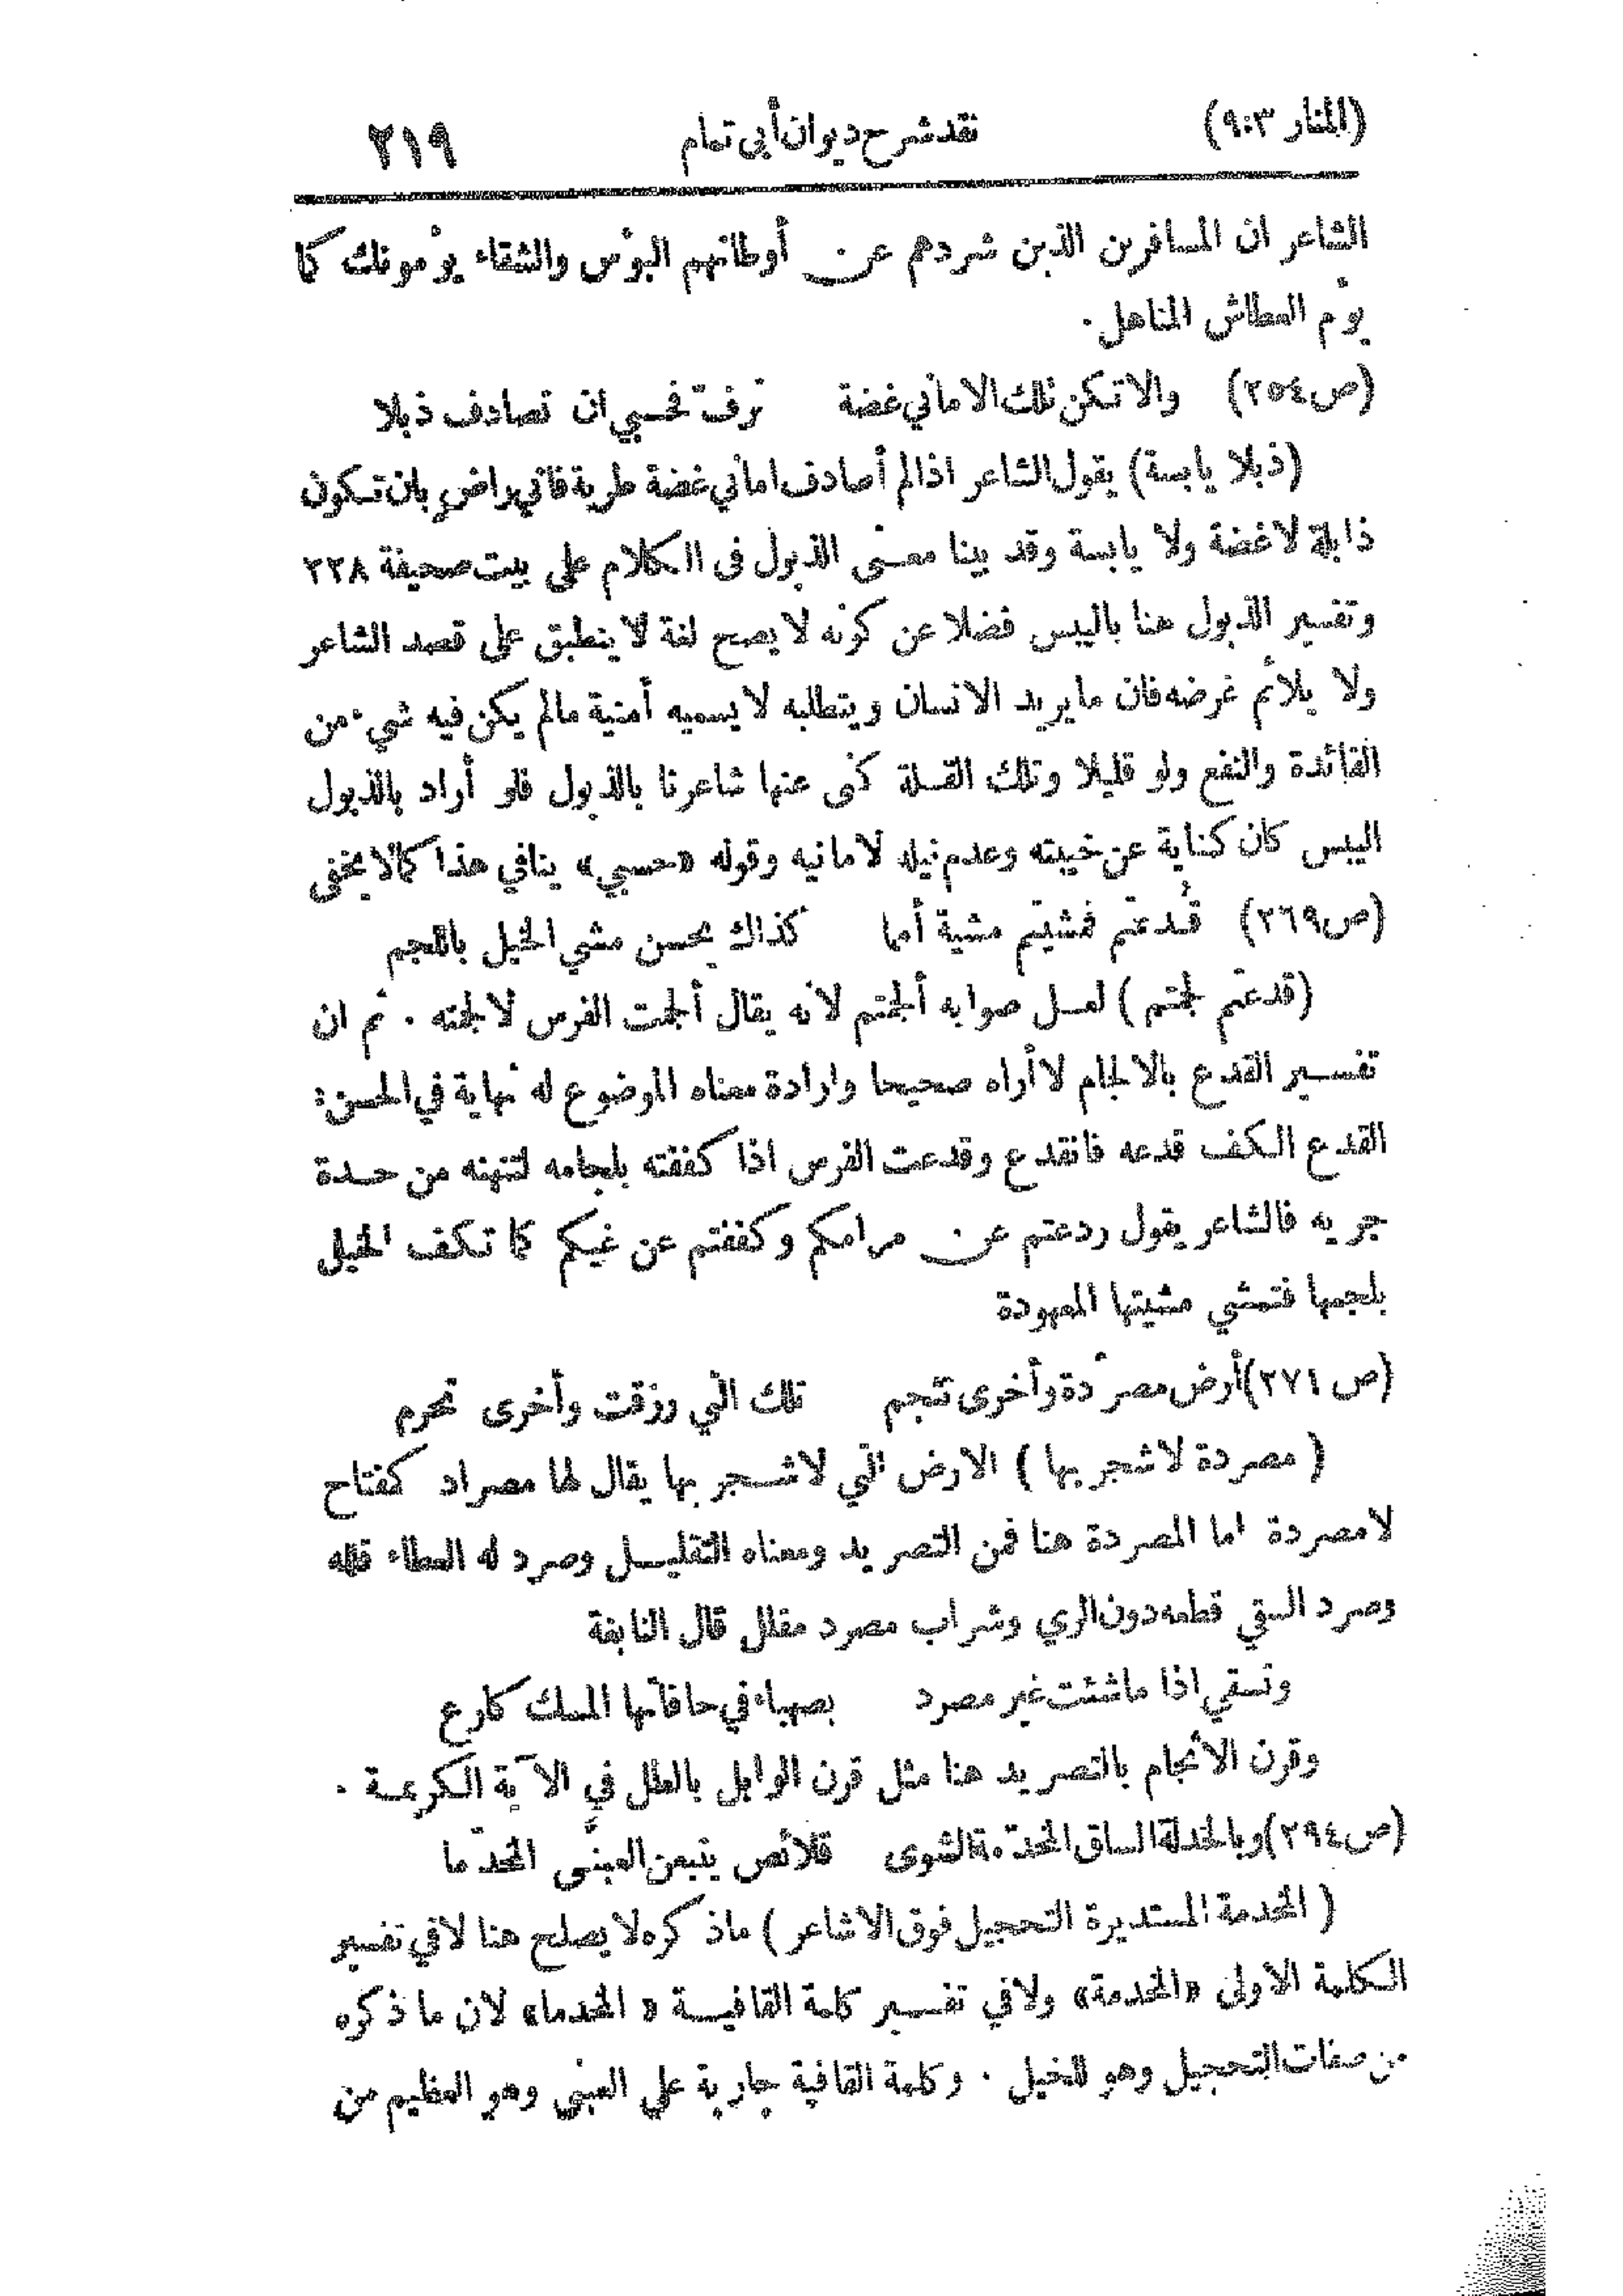 (المنار ٩:٣) نقد شرح ديوان أبي تمام ٢١٩
الشاعر ان المسافرين الذين شردهم عن أوطانهم البؤس والشقاء يؤمونك كما
يؤم العطاش المناهل.
(ص٢٥٤) والا تكن تلك الاماني غضة ترف فحسبي ان تصادف ذبلا
(ذبلا يابسة) يقول الشاعر اذا لم أصادف اماني غضة طرية فاني راض بان تكون
ذابلة لا غضة ولا يابسة وقد بينا معنى الذبول في الكلام على بيت صحيفة ٢٢٨
وتفسير الذبول هنا باليبس فضلا عن كونه لا يصح لغة لا ينطبق على قصد الشاعر
ولا يلائم غرضه فان ما يريد الانسان ويتطلبه لا يسميه أمنية مالم يكن فيه شيء من
الفائدة والنفع ولو قليلا وتلك القلة كنى عنها شاعرنا بالذبول فلو أراد بالذبول
اليبس كان كناية عن خيبته وعدم نيله لامانيه وقوله «حسبي» ينافي هذا كما لا يخفى
(ص٢٦٩) قُدعتم فمشيتم مشية أمما كذاك يحسن مشي الخيل باللجم
(قدعتم لجمتم) لعل صوابه ألجمتم لانه يقال ألجمت الفرس لا لجمته. ثم ان
تفسير القدع بالالجام لا أراه صحيحا وارادة معناه الموضوع له نهاية في الحسن:
القدع الكف قدعه فانقدع وقدعت الفرس اذا كففته بلجامه لتنهنه من حدة
جريه فالشاعر يقول ردعتم عن مرامكم وكففتم عن غيكم كما تكف الخيل
بلجمها فتمشي مشيتها المعهودة
(ص ٢٧١) أرض مصرّدة وأخرى تثجم تلك التي رزقت وأخرى تحرم
(مصردة لا شجر بها) الارض التي لا شجر بها يقال لها مصراد كمفتاح
لا مصردة اما المصردة هنا فمن التصريد ومعناه التقليل وصرد له العطاء قلله
وصرد السقي قطعه دون الري وشراب مصرد مقلل قال النابغة
وتسقي اذا ما شئت غير مصرد بصهباء في حافاتها المسك كارع
وقرن الاثجام بالتصريد هنا مثل قرن الوابل بالطل في الآية الكريمة.
(ص٢٩٤) وبالخدلة الساق المخدّمة الشوى قلائص يتبعن العبنّى المخدّما
(المخدمة المستديرة التحجيل فوق الاشاعر) ما ذكره لا يصلح هنا لا في تفسير
الكلمة الاولى «المخدمة» ولا في تفسير كلمة القافية «المخدما» لان ما ذكره
من صفات التحجيل وهو للخيل. وكلمة القافية جارية على العبنى وهو العظيم من